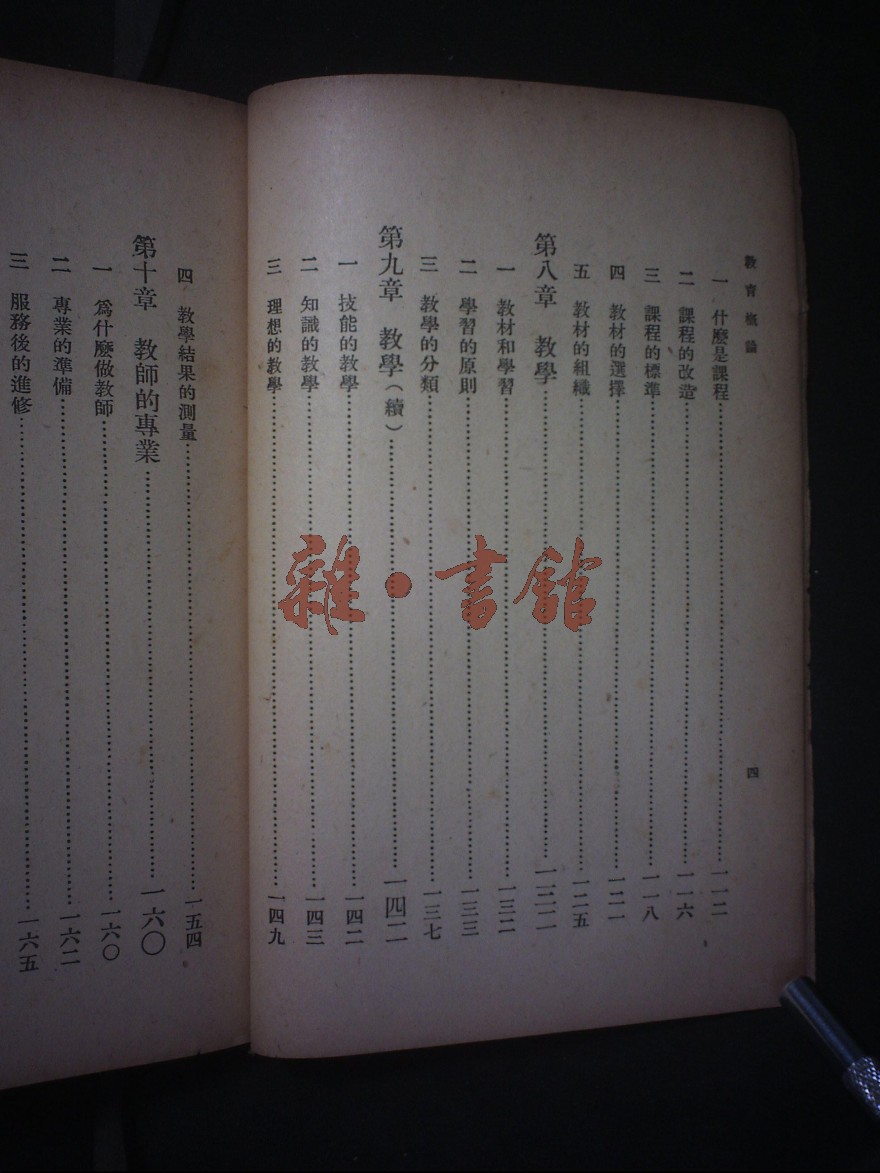 教育概論
一 什麼是課程……一一二
二 課程的改造……一一六
三 課程的標準……一一八
四 教材的選擇……一二一
五 教材的組織……一二五
第八章 教學……一三二
一 教材和學習……一三二
二 學習的原則……一三三
三 教學的分類……一三七
第九章 教學(續)……一四二
一 技能的教學……一四二
二 知識的教學……一四三
三 理想的教學……一四九
四
四 教學結果的測量……一五四
第十章 教師的專業……一六〇
一 爲什麼做教師……一六〇
二 專業的準備……一六二
三 服務後的進修……一六五
雜·書館